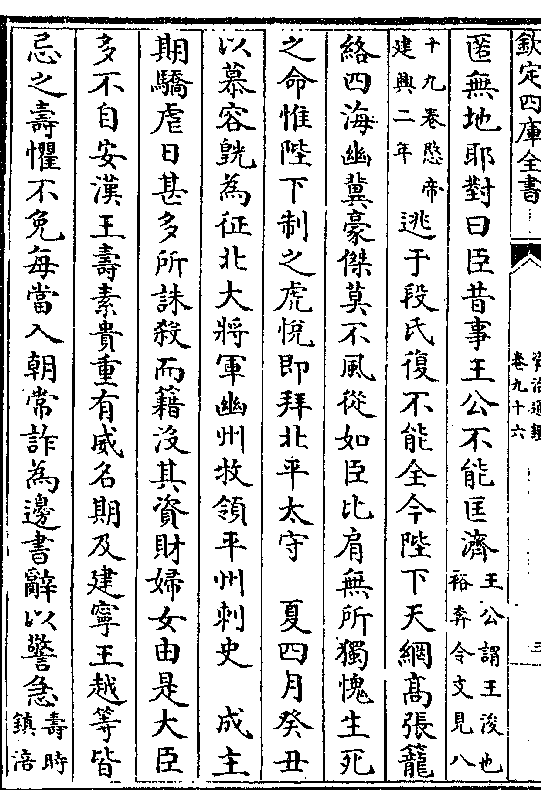 欽定四庫全書
資治通鑑
卷九十六
三
匿無地耶對曰臣昔事王公不能匡濟王公謂王浚也裕奔令文見八
十九卷愍帝建興二年逃于段氏復不能全今陛下天網髙張籠
絡四海幽冀豪傑莫不風從如臣比肩無所獨愧生死
之命惟陛下制之虎悦即拜北平太守　夏四月癸丑
以慕容皝為征北大將軍幽州牧領平州刺史　成主
期驕虐日甚多所誅殺而籍沒其資財婦女由是大臣
多不自安漢王壽素貴重有威名期及建寧王越等皆
忌之壽懼不免每當入朝常詐為邊書辭以警急壽時鎮涪